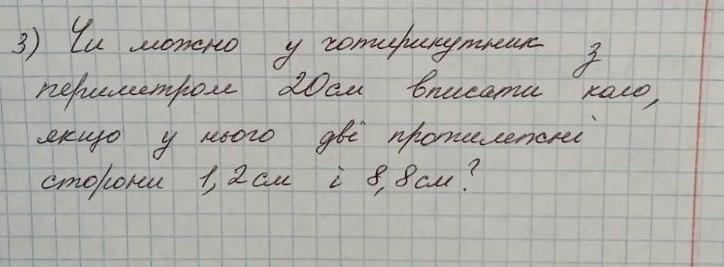 3) Чи можно у чотирикутник з
периметром 20см вписати коло,
якщо у нього дві протилежні
сторони 1,2см і 8,8см?